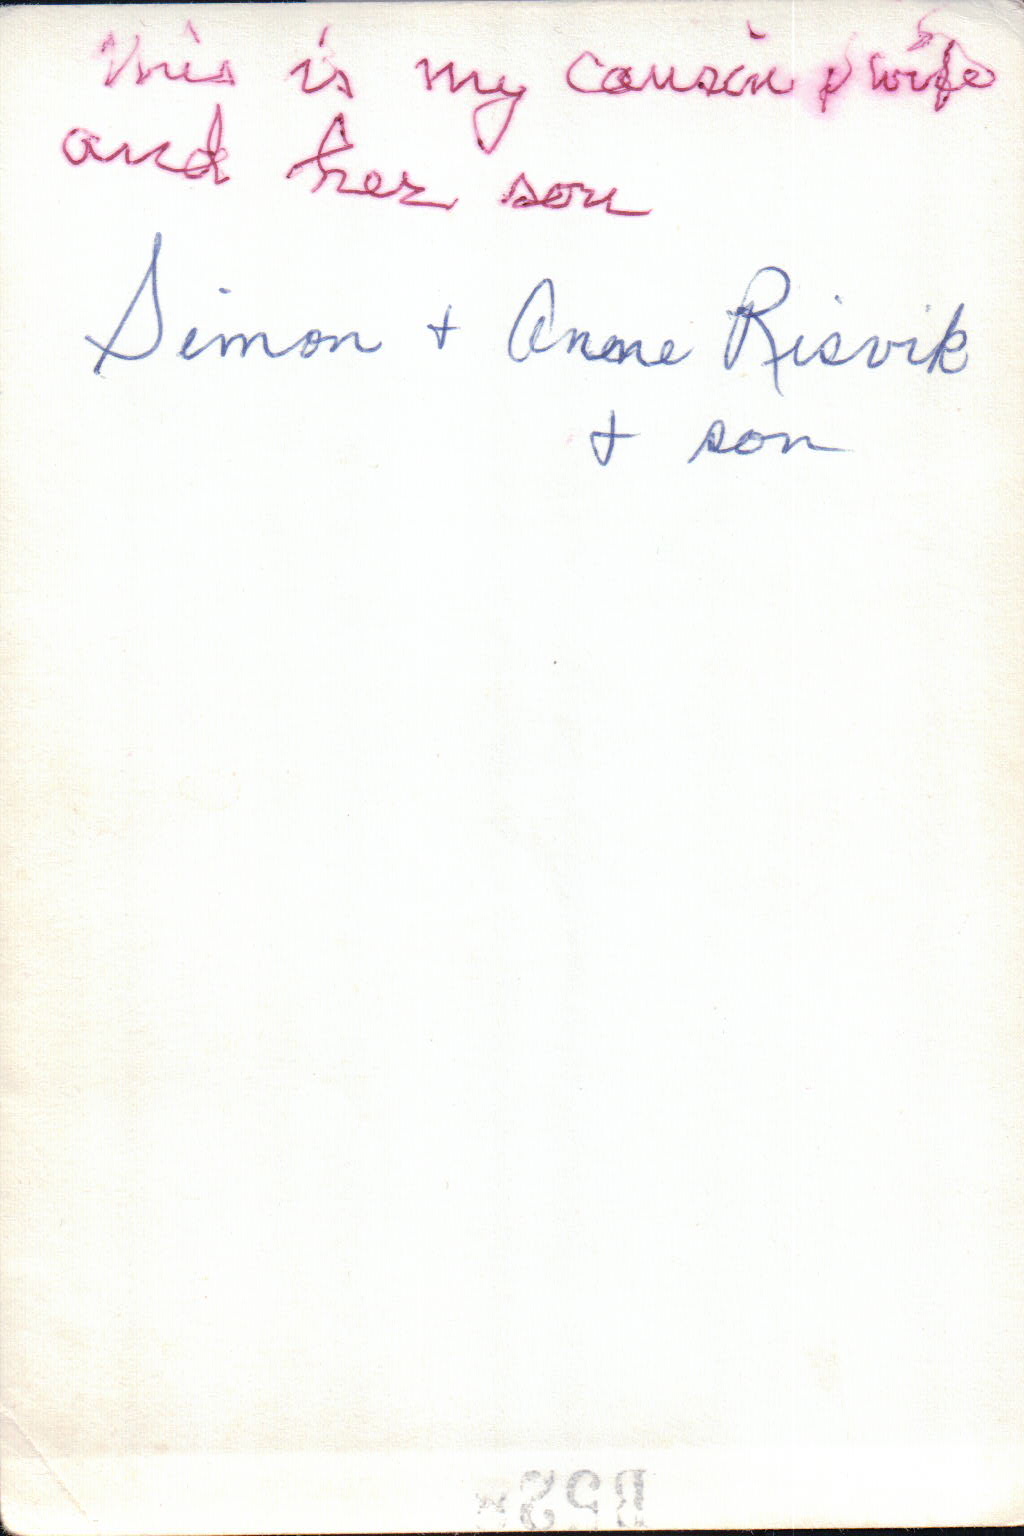 this is my cousin wife
and her son
Simon + Anne Risvik
+ son